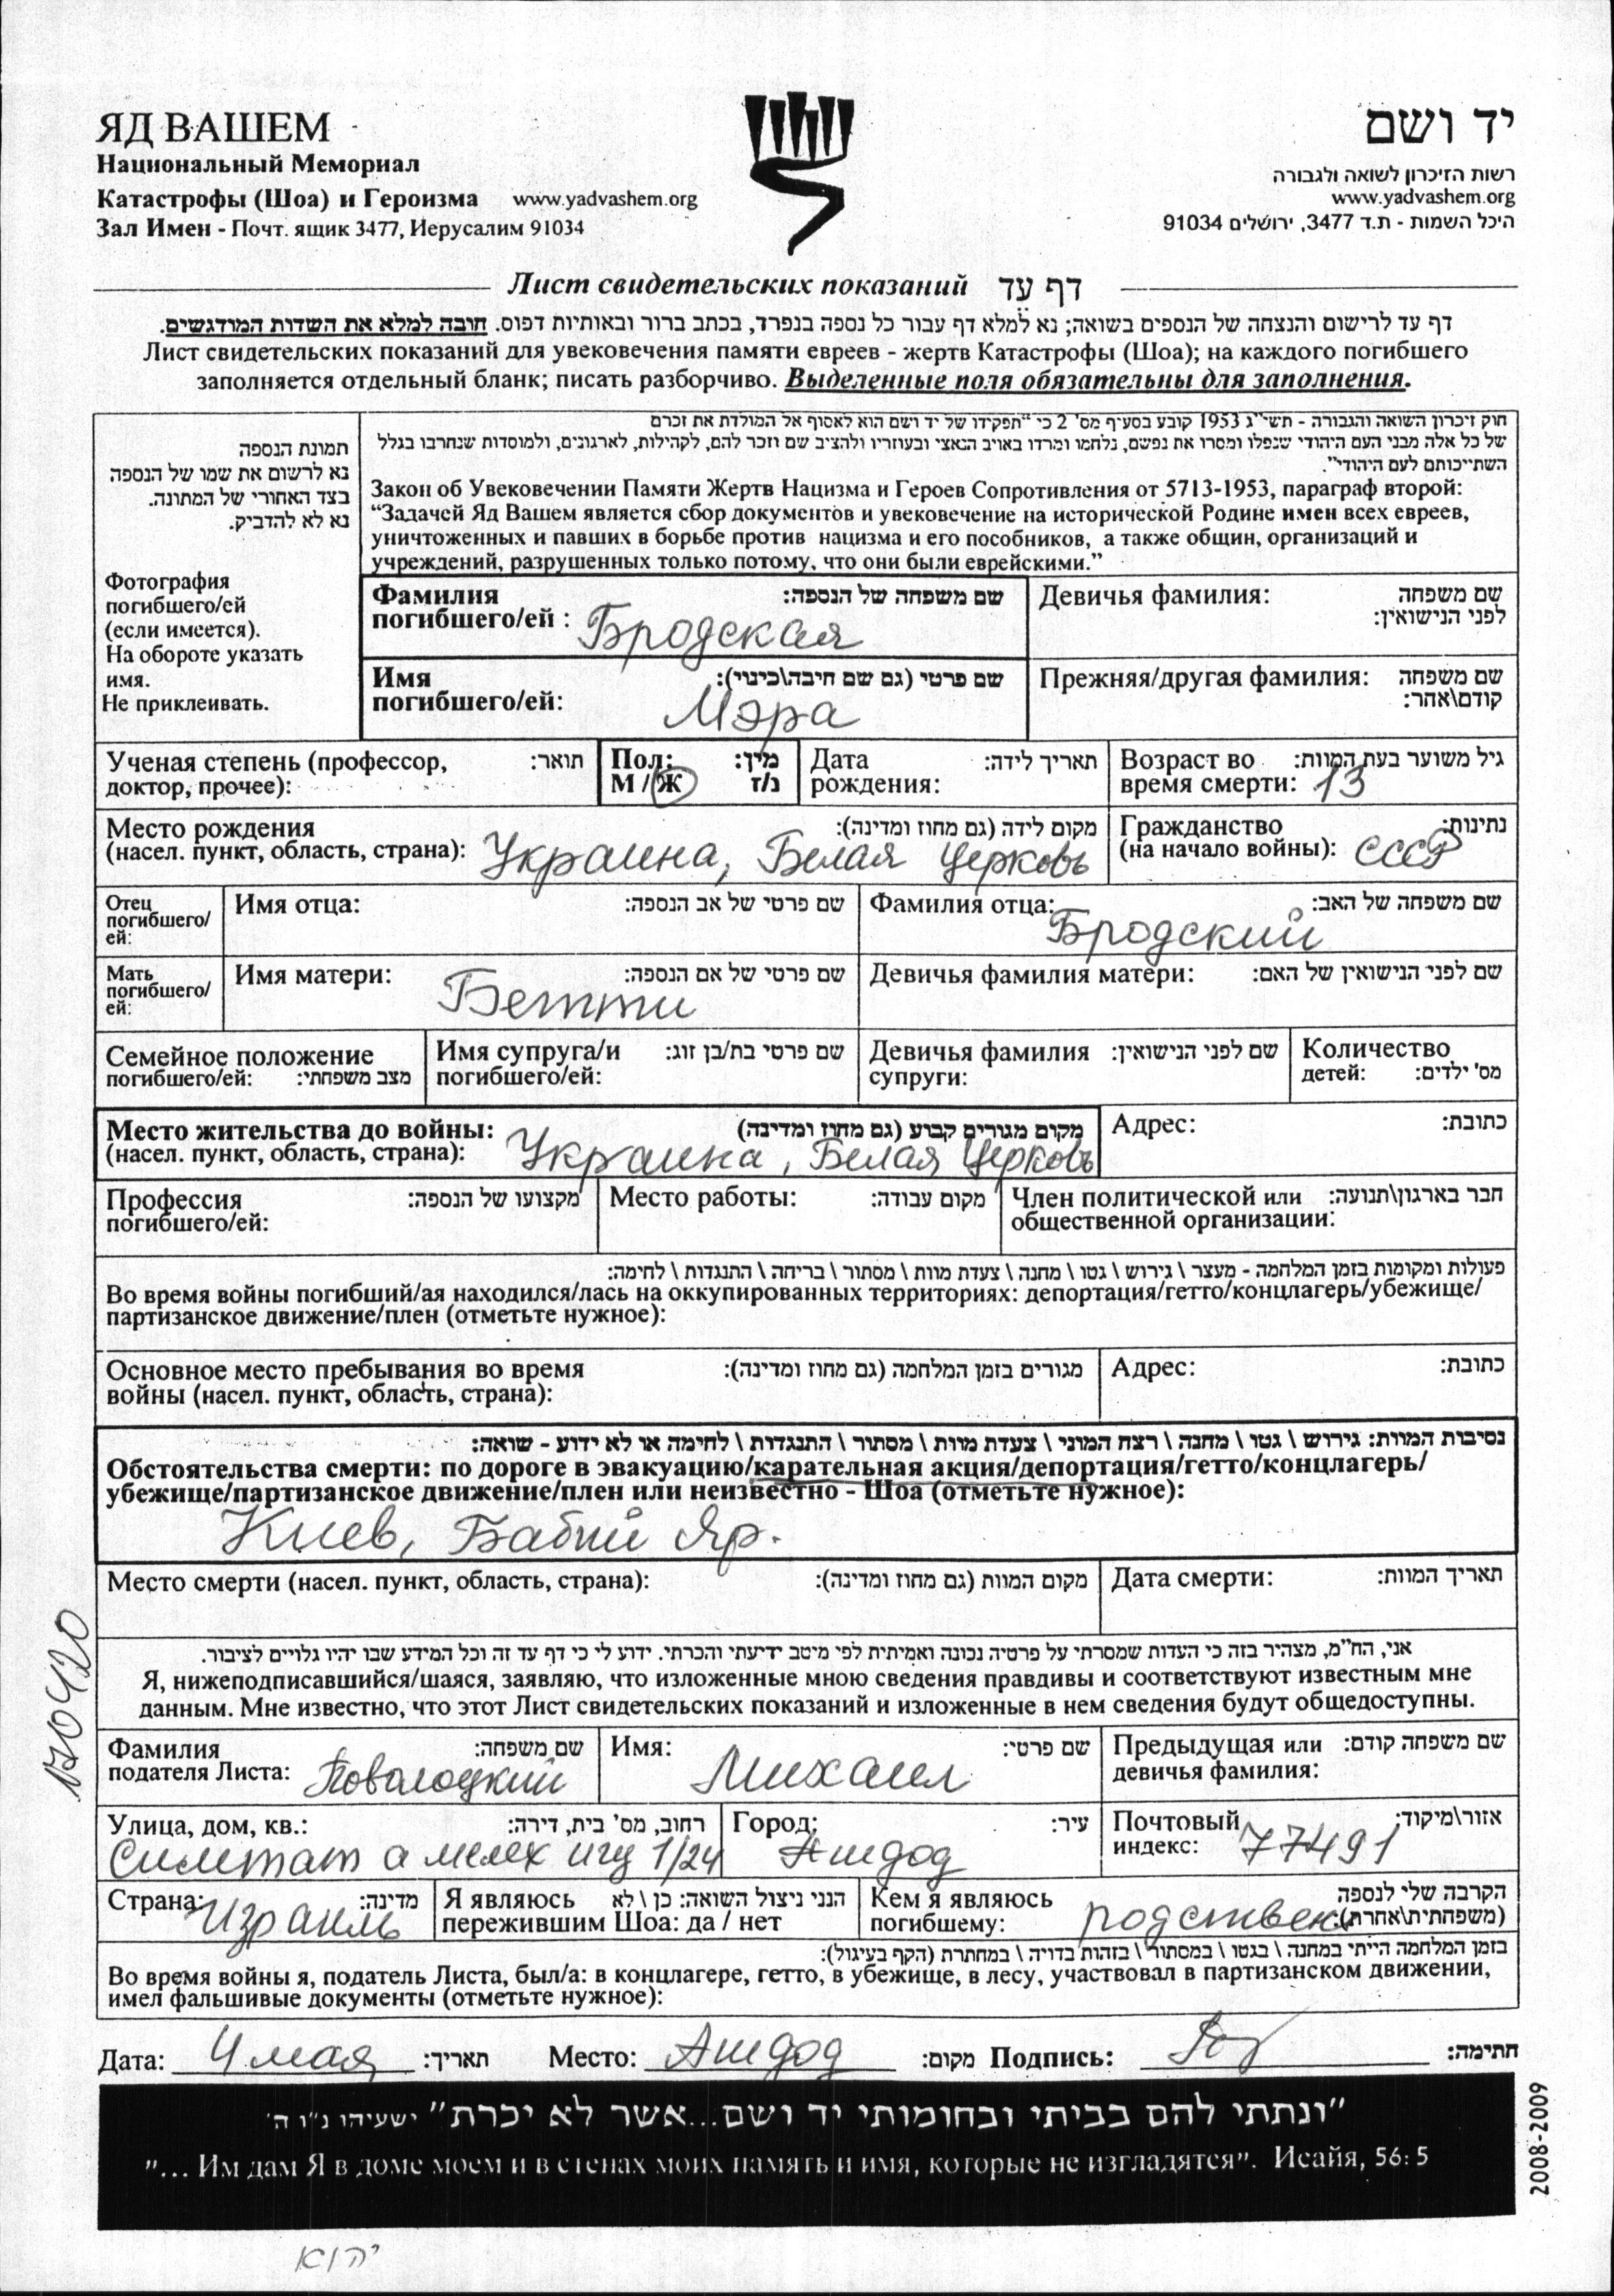 ЯД ВАШЕМ
Национальный Мемориал
Катастрофы (Шоа) и Героизма www.yadvashem.org
Зал Имен - Почт. ящик 3477, Иерусалим 91034
יד ושם
רשות הזיכרון לשואה ולגבורה
www.yadvashem.org
היכל השמות - ת.ד 3477, ירושלים 91034
Лист свидетельских показаний דף עד
דף עד לרישום והנצחה של הנספים בשואה; נא למלא דף עבור כל נספה בנפרד, בכתב ברור ובאותיות דפוס. חובה למלא את השדות המודגשים.
Лист свидетельских показаний для увековечения памяти евреев - жертв Катастрофы (Шоа); на каждого погибшего
заполняется отдельный бланк; писать разборчиво. Выделенные поля обязательны для заполнения.
תמונת הנספה
נא לרשום את שמו של הנספה
בצד האחורי של המתונה.
נא לא להדביק.
Фотография
погибшего/ей
(если имеется).
На обороте указать
имя.
Не приклеивать.
חוק זיכרון השואה והגבורה - תשי"ג 1953 קובע בסעיף מס' 2 כי "תפקידו של יד ושם הוא לאסוף אל המולדת את זכרם
של כל אלה מבני העם היהודי שנפלו ומסרו את נפשם, נלחמו ומרדו באויב הנאצי ובעוזריו ולהציב שם וזכר להם, לקהילות, לארגונים, ולמוסדות שנחרבו בגלל
השתייכותם לעם היהודי".
Закон об Увековечении Памяти Жертв Нацизма и Героев Сопротивления от 5713-1953, параграф второй:
“Задачей Яд Вашем является сбор документов и увековечение на исторической Родине имен всех евреев,
уничтоженных и павших в борьбе против нацизма и его пособников, а также общин, организаций и
учреждений, разрушенных только потому, что они были еврейскими.”
Фамилия שם משפחה של הנספה:
погибшего/ей : Бродская
Девичья фамилия: שם משפחה
לפני הנישואין:
Имя שם פרטי (גם שם חיבה\כינוי):
погибшего/ей: Мэра
Прежняя/другая фамилия: שם משפחה
קודם\אחר:
Ученая степень (профессор, תואר:
доктор, прочее):
Пол: מין:
М / Ж נ/ז
Дата תאריך לידה:
рождения:
Возраст во גיל משוער בעת המוות:
время смерти: 13
Место рождения מקום לידה (גם מחוז ומדינה):
(насел. пункт, область, страна): Украина, Белая Церковь
Гражданство נתינות:
(на начало войны): СССР
Отец
погибшего/
ей:
Имя отца: שם פרטי של אב הנספה:
Фамилия отца: שם משפחה של האב:
Бродский
Мать
погибшего/
ей:
Имя матери: שם פרטי של אם הנספה:
Бетти
Девичья фамилия матери: שם לפני הנישואין של האם:
Семейное положение
погибшего/ей: מצב משפחתי:
Имя супруга/и שם פרטי בת/בן זוג:
погибшего/ей:
Девичья фамилия שם לפני הנישואין:
супруги:
Количество
детей: מס' ילדים:
Место жительства до войны: מקום מגורים קבוע (גם מחוז ומדינה)
(насел. пункт, область, страна): Украина, Белая Церковь
Адрес: כתובת:
Профессия מקצועו של הנספה:
погибшего/ей:
Место работы: מקום עבודה:
Член политической или חבר בארגון\תנועה:
общественной организации:
פעולות ומקומות בזמן המלחמה - מעצר \ גירוש \ גטו \ מחנה \ צעדת מוות \ מסתור \ בריחה \ התנגדות \ לחימה:
Во время войны погибший/ая находился/лась на оккупированных территориях: депортация/гетто/концлагерь/убежище/
партизанское движение/плен (отметьте нужное):
Основное место пребывания во время מגורים בזמן המלחמה (גם מחוז ומדינה):
войны (насел. пункт, область, страна):
Адрес: כתובת:
נסיבות המוות: גירוש \ גטו \ מחנה \ רצח המוני \ צעדת מוות \ מסתור \ התנגדות \ לחימה או לא ידוע - שואה:
Обстоятельства смерти: по дороге в эвакуацию/карательная акция/депортация/гетто/концлагерь/
убежище/партизанское движение/плен или неизвестно - Шоа (отметьте нужное):
Киев, Бабий Яр.
Место смерти (насел. пункт, область, страна): מקום המוות (גם מחוז ומדינה):
Дата смерти: תאריך המוות:
אני, הח"מ, מצהיר בזה כי העדות שמסרתי על פרטיה נכונה ואמיתית לפי מיטב ידיעתי והכרתי. ידוע לי כי דף עד זה וכל המידע שבו יהיו גלויים לציבור.
Я, нижеподписавшийся/шаяся, заявляю, что изложенные мною сведения правдивы и соответствуют известным мне
данным. Мне известно, что этот Лист свидетельских показаний и изложенные в нем сведения будут общедоступны.
Фамилия שם משפחה:
подателя Листа: Поволоцкий
Имя: שם פרטי:
Михаил
Предыдущая или שם משפחה קודם:
девичья фамилия:
Улица, дом, кв.: רחוב, מס' בית, דירה:
Симтат а мелех игц 1/24
Город: עיר:
Ашдод
Почтовый אזור\מיקוד:
индекс: 77491
Страна: מדינה:
Израиль
Я являюсь הנני ניצול השואה: כן \ לא
пережившим Шоа: да / нет
Кем я являюсь הקרבה שלי לנספה
погибшему: родствен (משפחתית\אחרת):
בזמן המלחמה הייתי במחנה \ בגטו \ במסתור \ בזהות בדויה \ במחתרת (הקף בעיגול):
Во время войны я, податель Листа, был/а: в концлагере, гетто, в убежище, в лесу, участвовал в партизанском движении,
имел фальшивые документы (отметьте нужное):
Дата: 4 мая תאריך: Место: Ашдод מקום: Подпись: חתימה:
"ונתתי להם בביתי ובחומותי יד ושם...אשר לא יכרת" ישעיהו נ"ו ה'
"... Им дам Я в доме моем и в стенах моих память и имя, которые не изгладятся". Исайя, 56: 5
2008-2009
170420